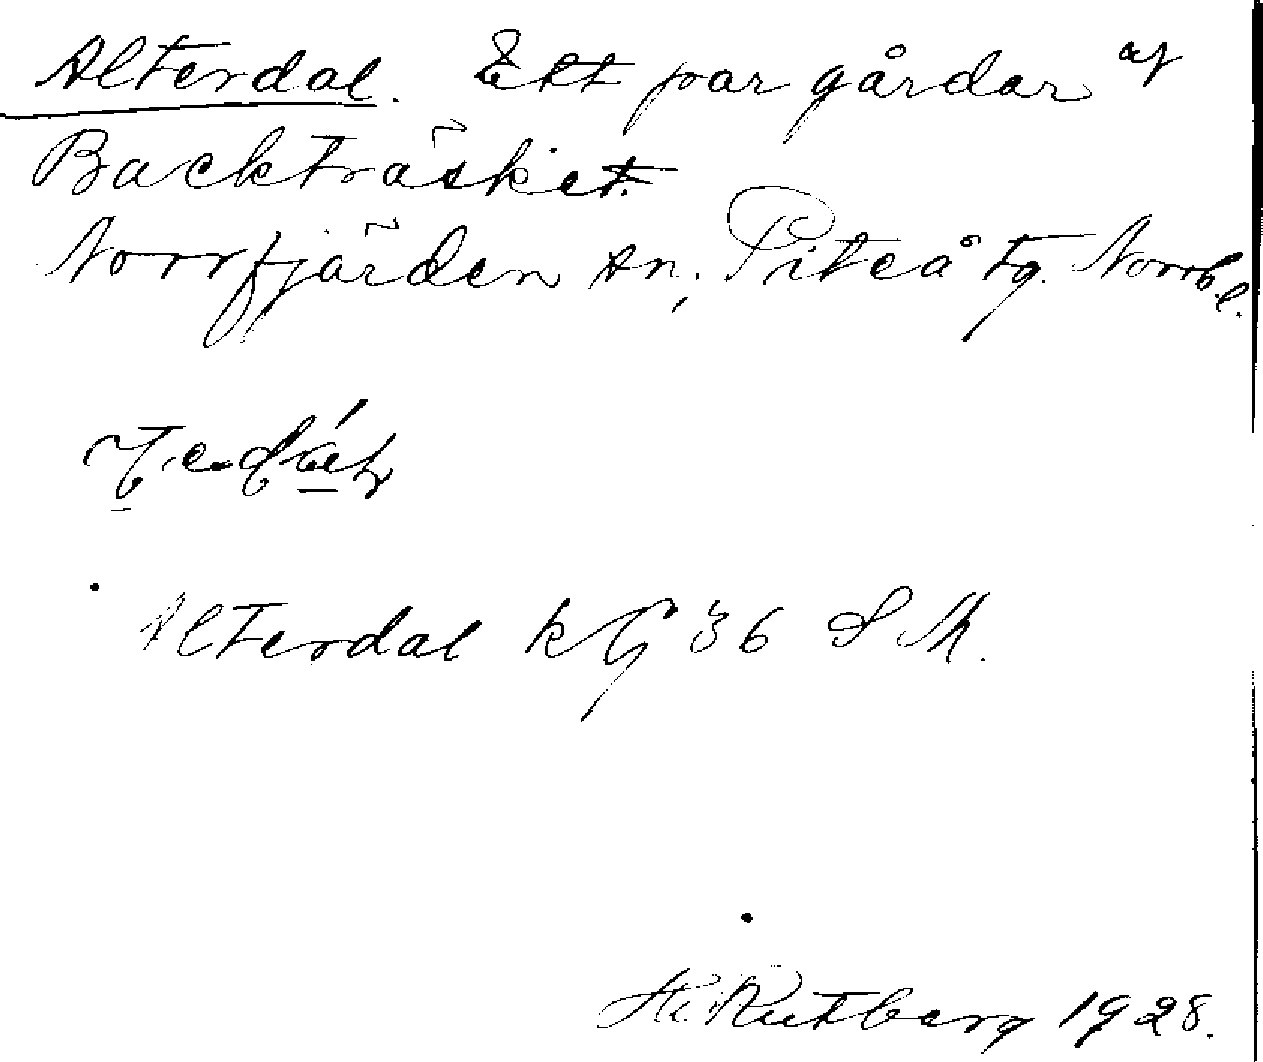 Alterdal. Ett par gårdar af
Backträsket.
Norrfjärden sn; Piteå tg. Norrb.l.
Alterdal k G 36 S M.
H. Rutberg 1928.